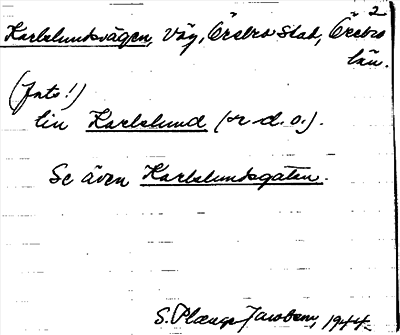 2
Karlslundsvägen, väg, Örebro stad, Örebro
län.
(Jnts!)
till Karlslund (s. d. o.).
Se även Karlslundsgatan.
S. Plænge Jacobson, 1944